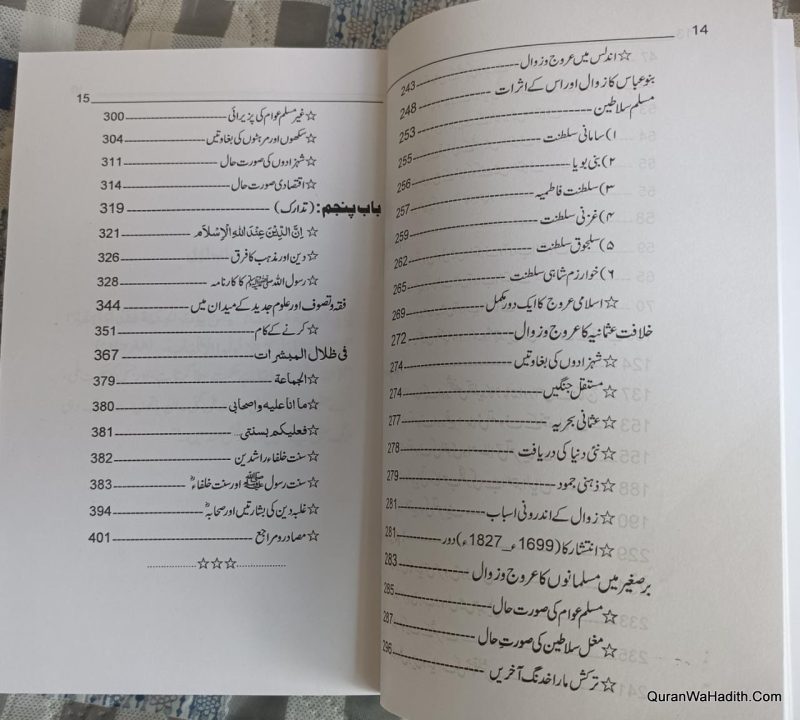 14
☆ اندلس میں عروج و زوال 243
بنو عباس کا زوال اور اس کے اثرات 248
مسلم سلاطین 253
۱) سامانی سلطنت 255
۲) بنی بویا 256
۳) سلطنت فاطمیہ 257
۴) غزنی سلطنت 259
۵) سلجوق سلطنت 262
۶) خوارزم شاہی سلطنت 265
☆ اسلامی عروج کا ایک دور مکمل 269
خلافت عثمانیہ کا عروج و زوال 272
☆ شہزادوں کی بغاوتیں 274
☆ مستقل جنگیں 274
☆ عثمانی بحریہ 277
☆ نئی دنیا کی دریافت 278
☆ ذہنی جمود 279
☆ زوال کے اندرونی اسباب 281
☆ انتشار کا (1699ء_1827ء) دور 281
برصغیر میں مسلمانوں کا عروج و زوال 283
☆ مسلم عوام کی صورت حال 285
☆ مغل سلاطین کی صورتِ حال 287
☆ ترکش مارا خدنگ آخریں 296
15
☆ غیر مسلم عوام کی پزیرائی 300
☆ سکھوں اور مرہٹوں کی بغاوتیں 304
☆ شہزادوں کی صورت حال 311
☆ اقتصادی صورت حال 314
باب پنجم: (تدارک) 319
☆ اِنَّ الدِّیْنَ عِنْدَ اللہِ الْاِسْلَام 321
☆ دین اور مذہب کا فرق 326
☆ رسول اللہ ﷺ کا کارنامہ 328
فقہ و تصوف اور علوم جدید کے میدان میں 344
☆ کرنے کے کام 351
فی ظلال المبشرات 367
☆ الجماعۃ 379
☆ ما انا علیہ و اصحابی 380
☆ فعلیکم بسنتی 381
☆ سنت خلفاء راشدین 382
☆ سنت رسول ﷺ اور سنت خلفاءؓ 383
☆ غلبہ دین کی بشارتیں اور صحابہؓ 394
☆ مصادر و مراجع 401
☆☆☆
QuranWaHadith.Com